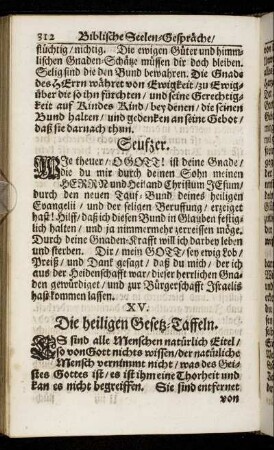 312 Biblische Seelen-Gespräche/
flüchtig/nichtig. Die ewigen Güter und himm-
lischen Gnaden-Schätze müssen dir doch bleiben.
Selig sind die den Bund bewahren. Die Gnade
des HErrn währet von Ewigkeit/zu Ewig-
über die so ihn fürchten/und seine Gerechtig-
keit auf Kindes Kind/bey denen/die seinen
Bund halten/und gedencken an seine Gebot/
daß sie darnach thun.
Seufzer.
WJe theuer/O GOTT! ist deine Gnade/
die du mir durch deinen Sohn meinen
HERRN und Heiland Christum JEsum/
durch den neuen Tauf-Bund deines heiligen
Evangelii/und der seligen Beruffung/erzeiget
hast! Hilff/daß ich diesen Bund in Glauben festig-
lich halten/und ja nimmermehr zerreissen möge.
Durch deine Gnaden-Krafft will ich darbey leben
und sterben. Dir/mein GOTT/sey ewig Lob/
Preiß/und Danck gesagt/daß du mich/der ich
aus der Heidenschafft war/dieser herrlichen Gna-
den gewürdiget/und zur Bürgerschafft Israelis
hast kommen lassen.
XV.
Die heiligen Gesetz-Taffeln.
ES sind alle Menschen natürlich Eitel/
so von Gott nichts wissen/der natürliche
Mensch vernimmt nicht/was des Gei-
stes Gottes ist/es ist ihm eine Thorheit und
kan es nicht begreiffen. Sie sind entfernet
von